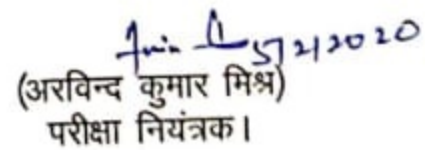 5/2/2020
(अरविन्द कुमार मिश्र)
परीक्षा नियंत्रक।